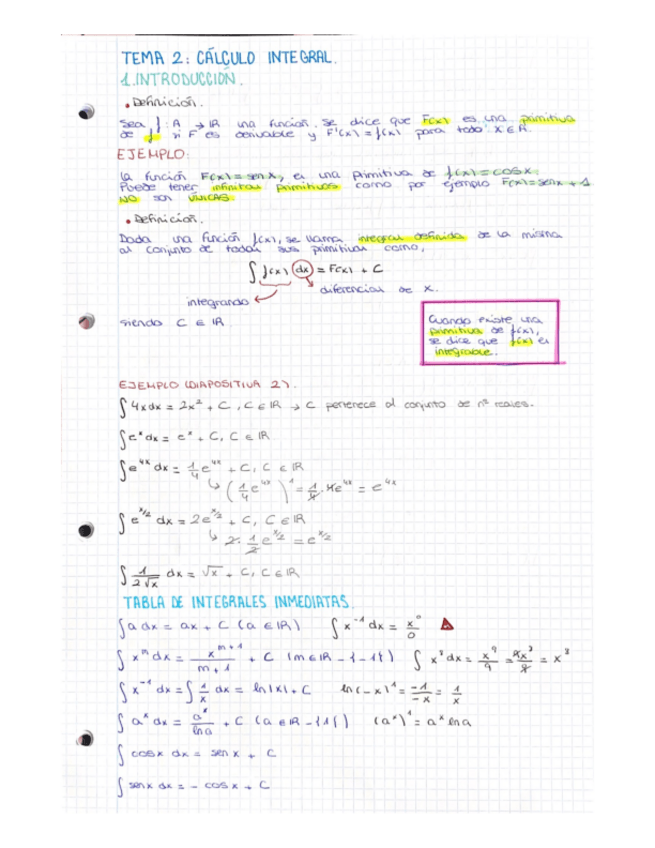 TEMA 2: CÁLCULO INTEGRAL.
1. INTRODUCCIÓN.
• Definición.
Sea f: A → IR una función. Se dice que F(x) es una primitiva
de f si F es derivable y F'(x) = f(x) para todo x ∈ A.
EJEMPLO:
La función F(x) = sen x, es una primitiva de f(x) = cos x.
Puede tener infinitas primitivas como por ejemplo F(x) = sen x + 1
NO son ÚNICAS.
• Definición.
Dada una función f(x), se llama integral definida de la misma
al conjunto de todas sus primitivas como,
∫ f(x) dx = F(x) + C
diferencial de x.
integrando
siendo C ∈ IR
Cuando existe una
primitiva de f(x),
se dice que f(x) es
integrable.
EJEMPLO (DIAPOSITIVA 2).
∫ 4x dx = 2x² + C, C ∈ IR → C pertenece al conjunto de nº reales.
∫ eˣ dx = eˣ + C, C ∈ IR
∫ e^{4x} dx = 1/4 e^{4x} + C, C ∈ IR
↳ (1/4 e^{4x})' = 1/4 · 4e^{4x} = e^{4x}
∫ e^{x/2} dx = 2e^{x/2} + C, C ∈ IR
↳ 2 · 1/2 e^{x/2} = e^{x/2}
∫ 1/(2√x) dx = √x + C, C ∈ IR
TABLA DE INTEGRALES INMEDIATAS.
∫ a dx = ax + C (a ∈ IR) ∫ x⁻¹ dx = x⁰/0
∫ x^m dx = x^{m+1}/(m+1) + C (m ∈ IR - {-1}) ∫ x⁸ dx = x⁹/9 = 9x⁸/9 = x⁸
∫ x⁻¹ dx = ∫ 1/x dx = ln|x| + C ln(-x)' = -1/-x = 1/x
∫ aˣ dx = aˣ/ln a + C (a ∈ IR - {1}) (aˣ)' = aˣ ln a
∫ cos x dx = sen x + C
∫ sen x dx = - cos x + C